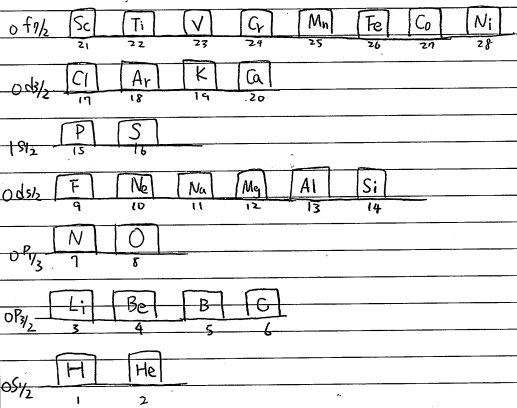 0f7/2 Sc Ti V Cr Mn Fe Co Ni
21 22 23 24 25 26 27 28
0d3/2 Cl Ar K Ca
17 18 19 20
1s1/2 P S
15 16
0d5/2 F Ne Na Mg Al Si
9 10 11 12 13 14
0P1/3 N O
7 8
0P3/2 Li Be B C
3 4 5 6
0S1/2 H He
1 2